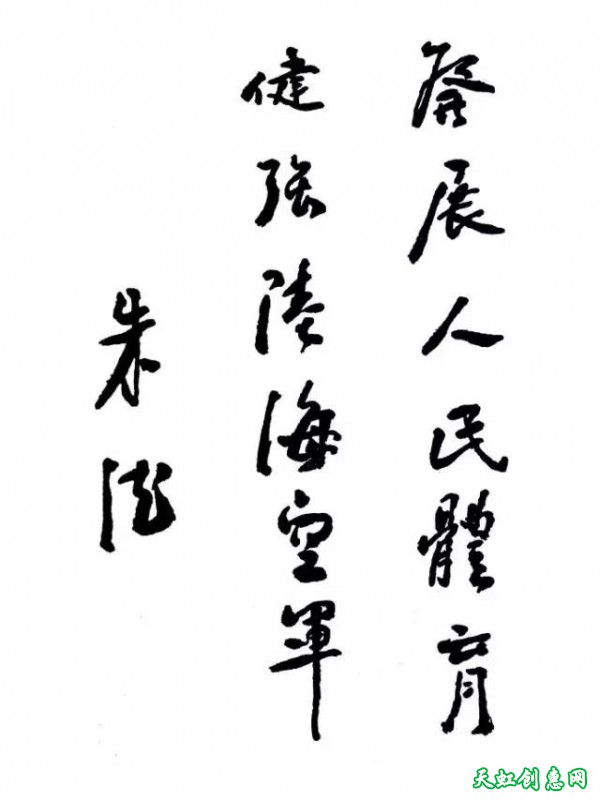 發展人民體育
健強陸海空軍
朱德
天虹创惠网